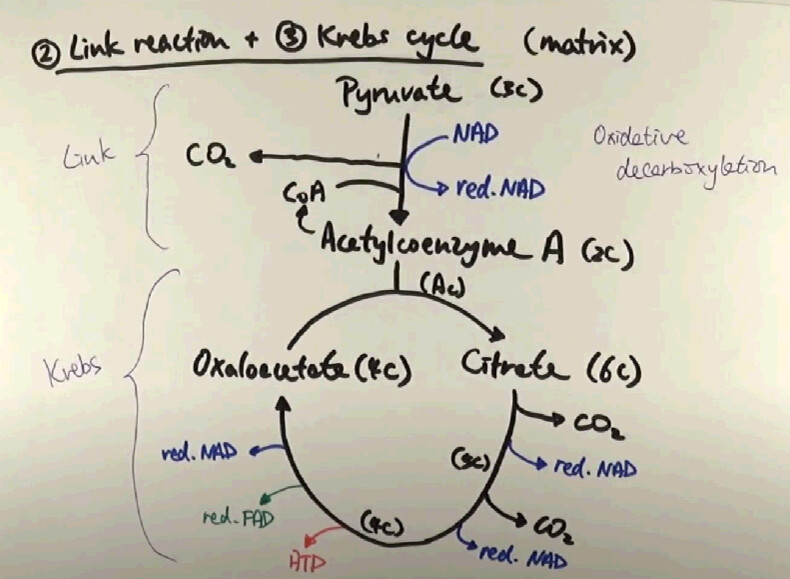 ② Link reaction + ③ Krebs cycle (matrix)
Pyruvate (3c)
Link
CO₂
NAD
red. NAD
Oxidative
decarboxylation
CoA
Acetylcoenzyme A (2c)
(Ac)
Krebs
Oxaloacetate (4c)
Citrate (6c)
CO₂
red. NAD
(5c)
red. NAD
red. FAD
CO₂
(4c)
ATP
red. NAD